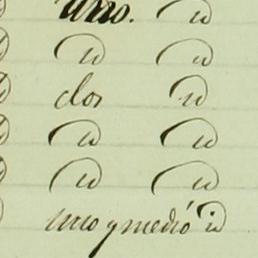 uno. id
id id
dos id
id id
id id
uno y medio id